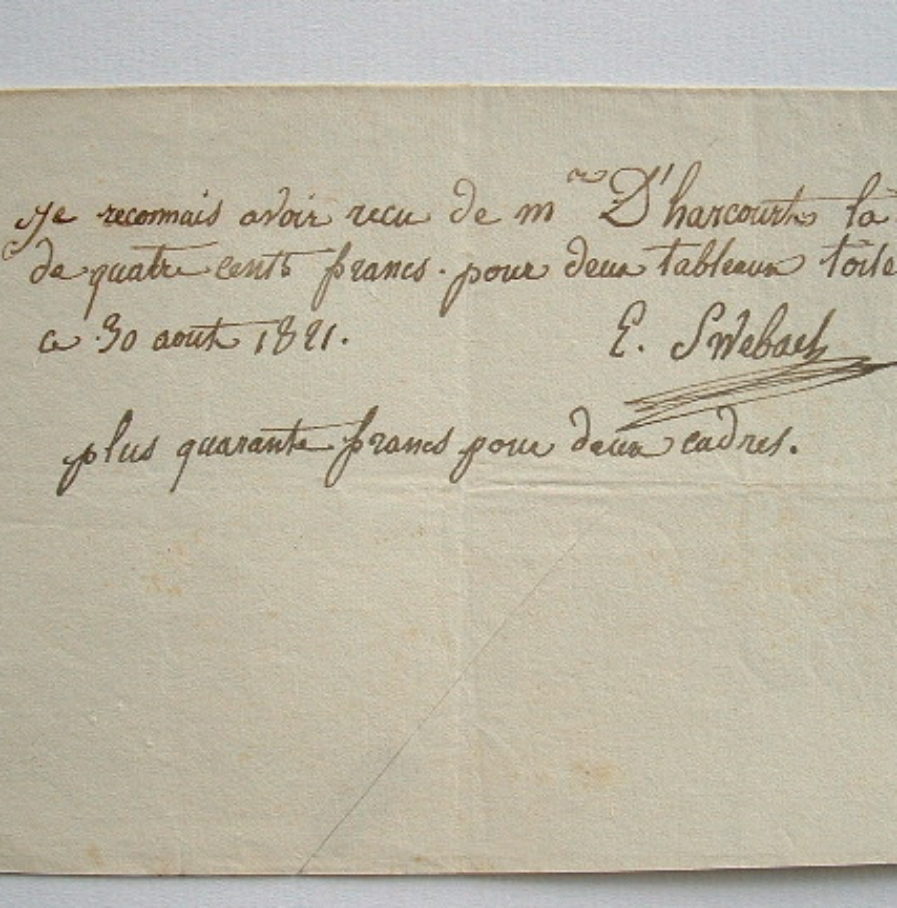 Je reconnais avoir recu de mr D'harcourt la
de quatre cents francs. pour deux tableaux toile
ce 30 aout 1821.
E. Swebach
plus quarante francs pour deux cadres.